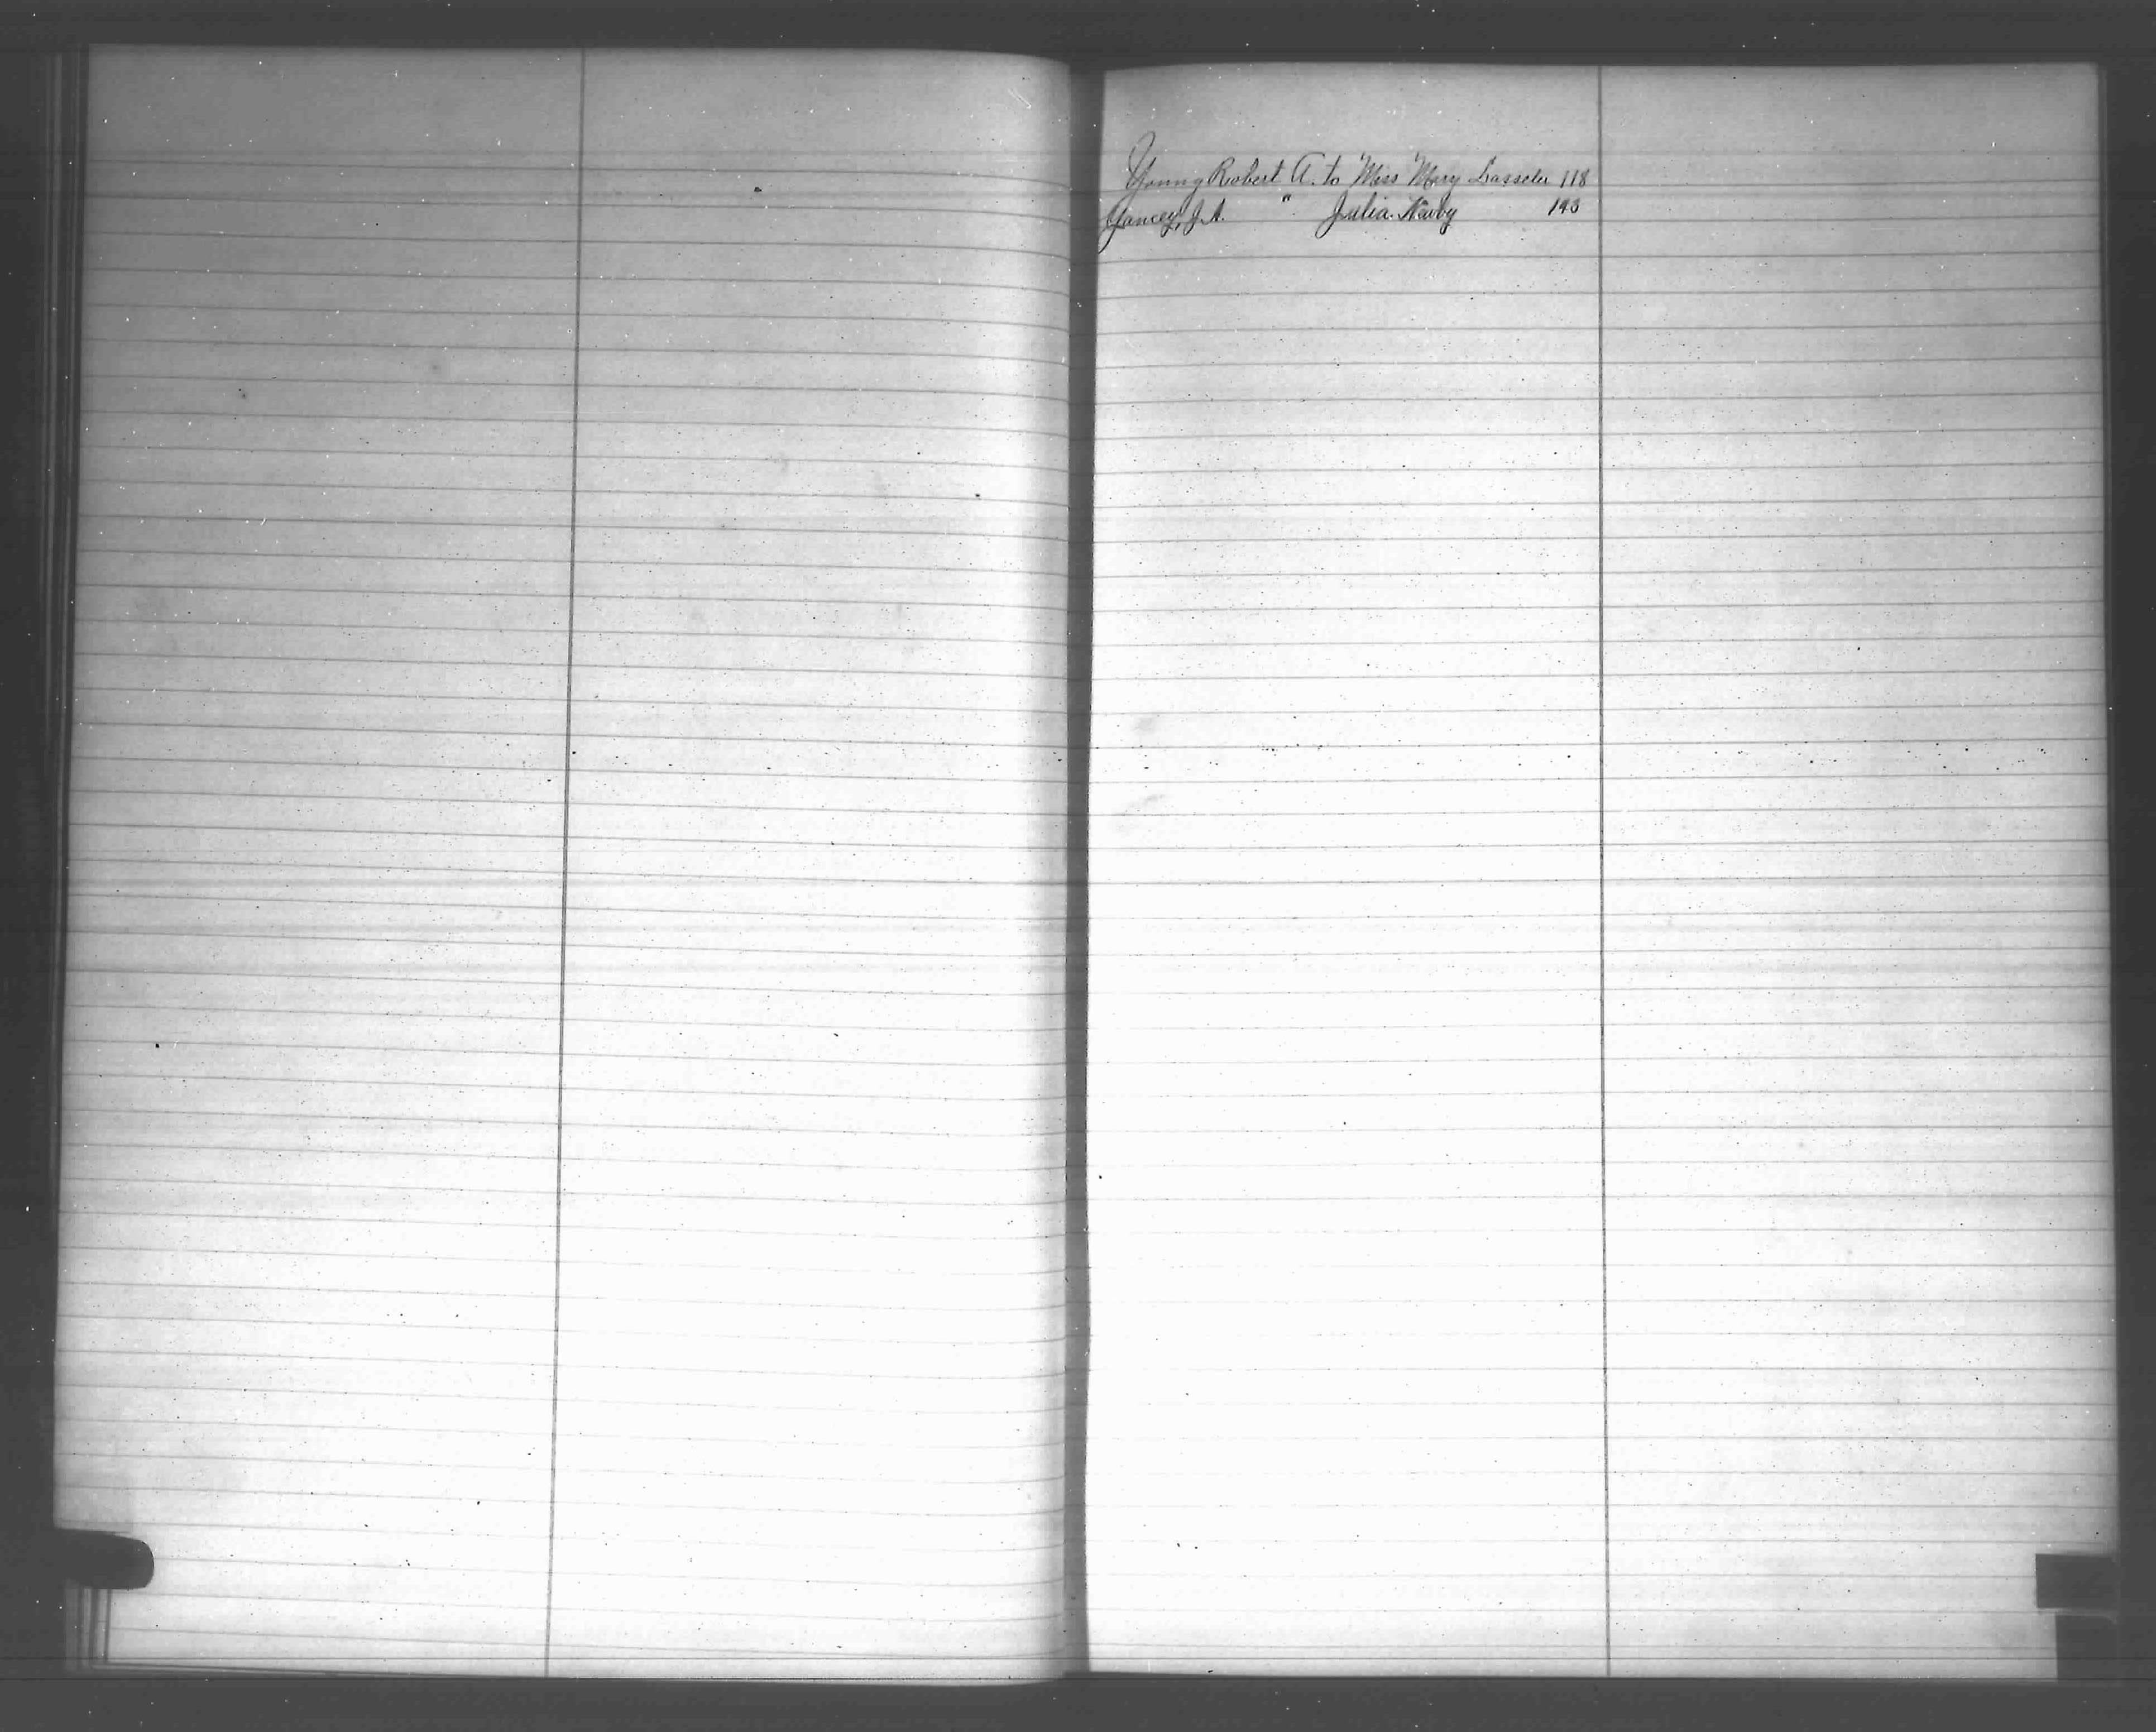 Young Robert A. to Miss Mary Lasseter 118
Yancey, J. A. " Julia 193